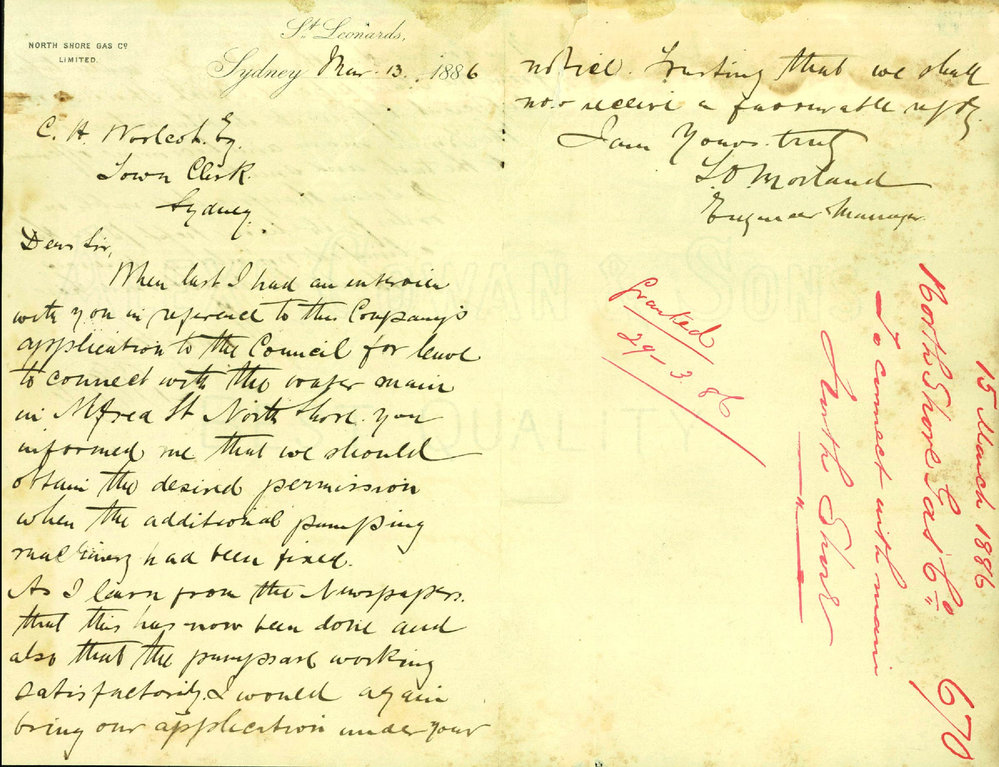 NORTH SHORE GAS Cº
LIMITED.
St. Leonards,
Sydney Mar. 13. 1886
C. H. Woolcott. Esq.
Town Clerk.
Sydney.
Dear Sir,
When last I had an interview
with you in reference to the Company's
application to the Council for leave
to connect with the water main
in Alfred St North Shore, you
informed me that we should
obtain the desired permission
when the additional pumping
machinery had been fixed.
As I learn from the Newspapers.
that this has now been done and
also that the pumps are working
satisfactorily. I would again
bring our application under your
notice. Trusting that we shall
now receive a favourable reply.
I am Yours truly
Morland
Engineer & Manager.
Granted
29-3.86
15 March 1886
North Shore Gas Cº
To connect with main
North Shore
670
QUALITY